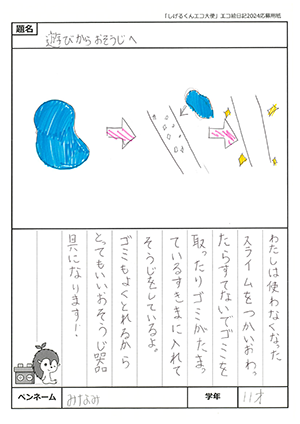 「しげるくんエコ大使」エコ絵日記2024応募用紙
題名
遊びからおそうじへ
わたしは使わなくなった
スライムをつかいおわっ
たらすてないでゴミを
取ったりゴミがたまっ
ているすきまに入れて
そうじをしているよ。
ゴミもよくとれるから
とってもいいおそうじ器
具になります!
ペンネーム
みなみ
学年
11才